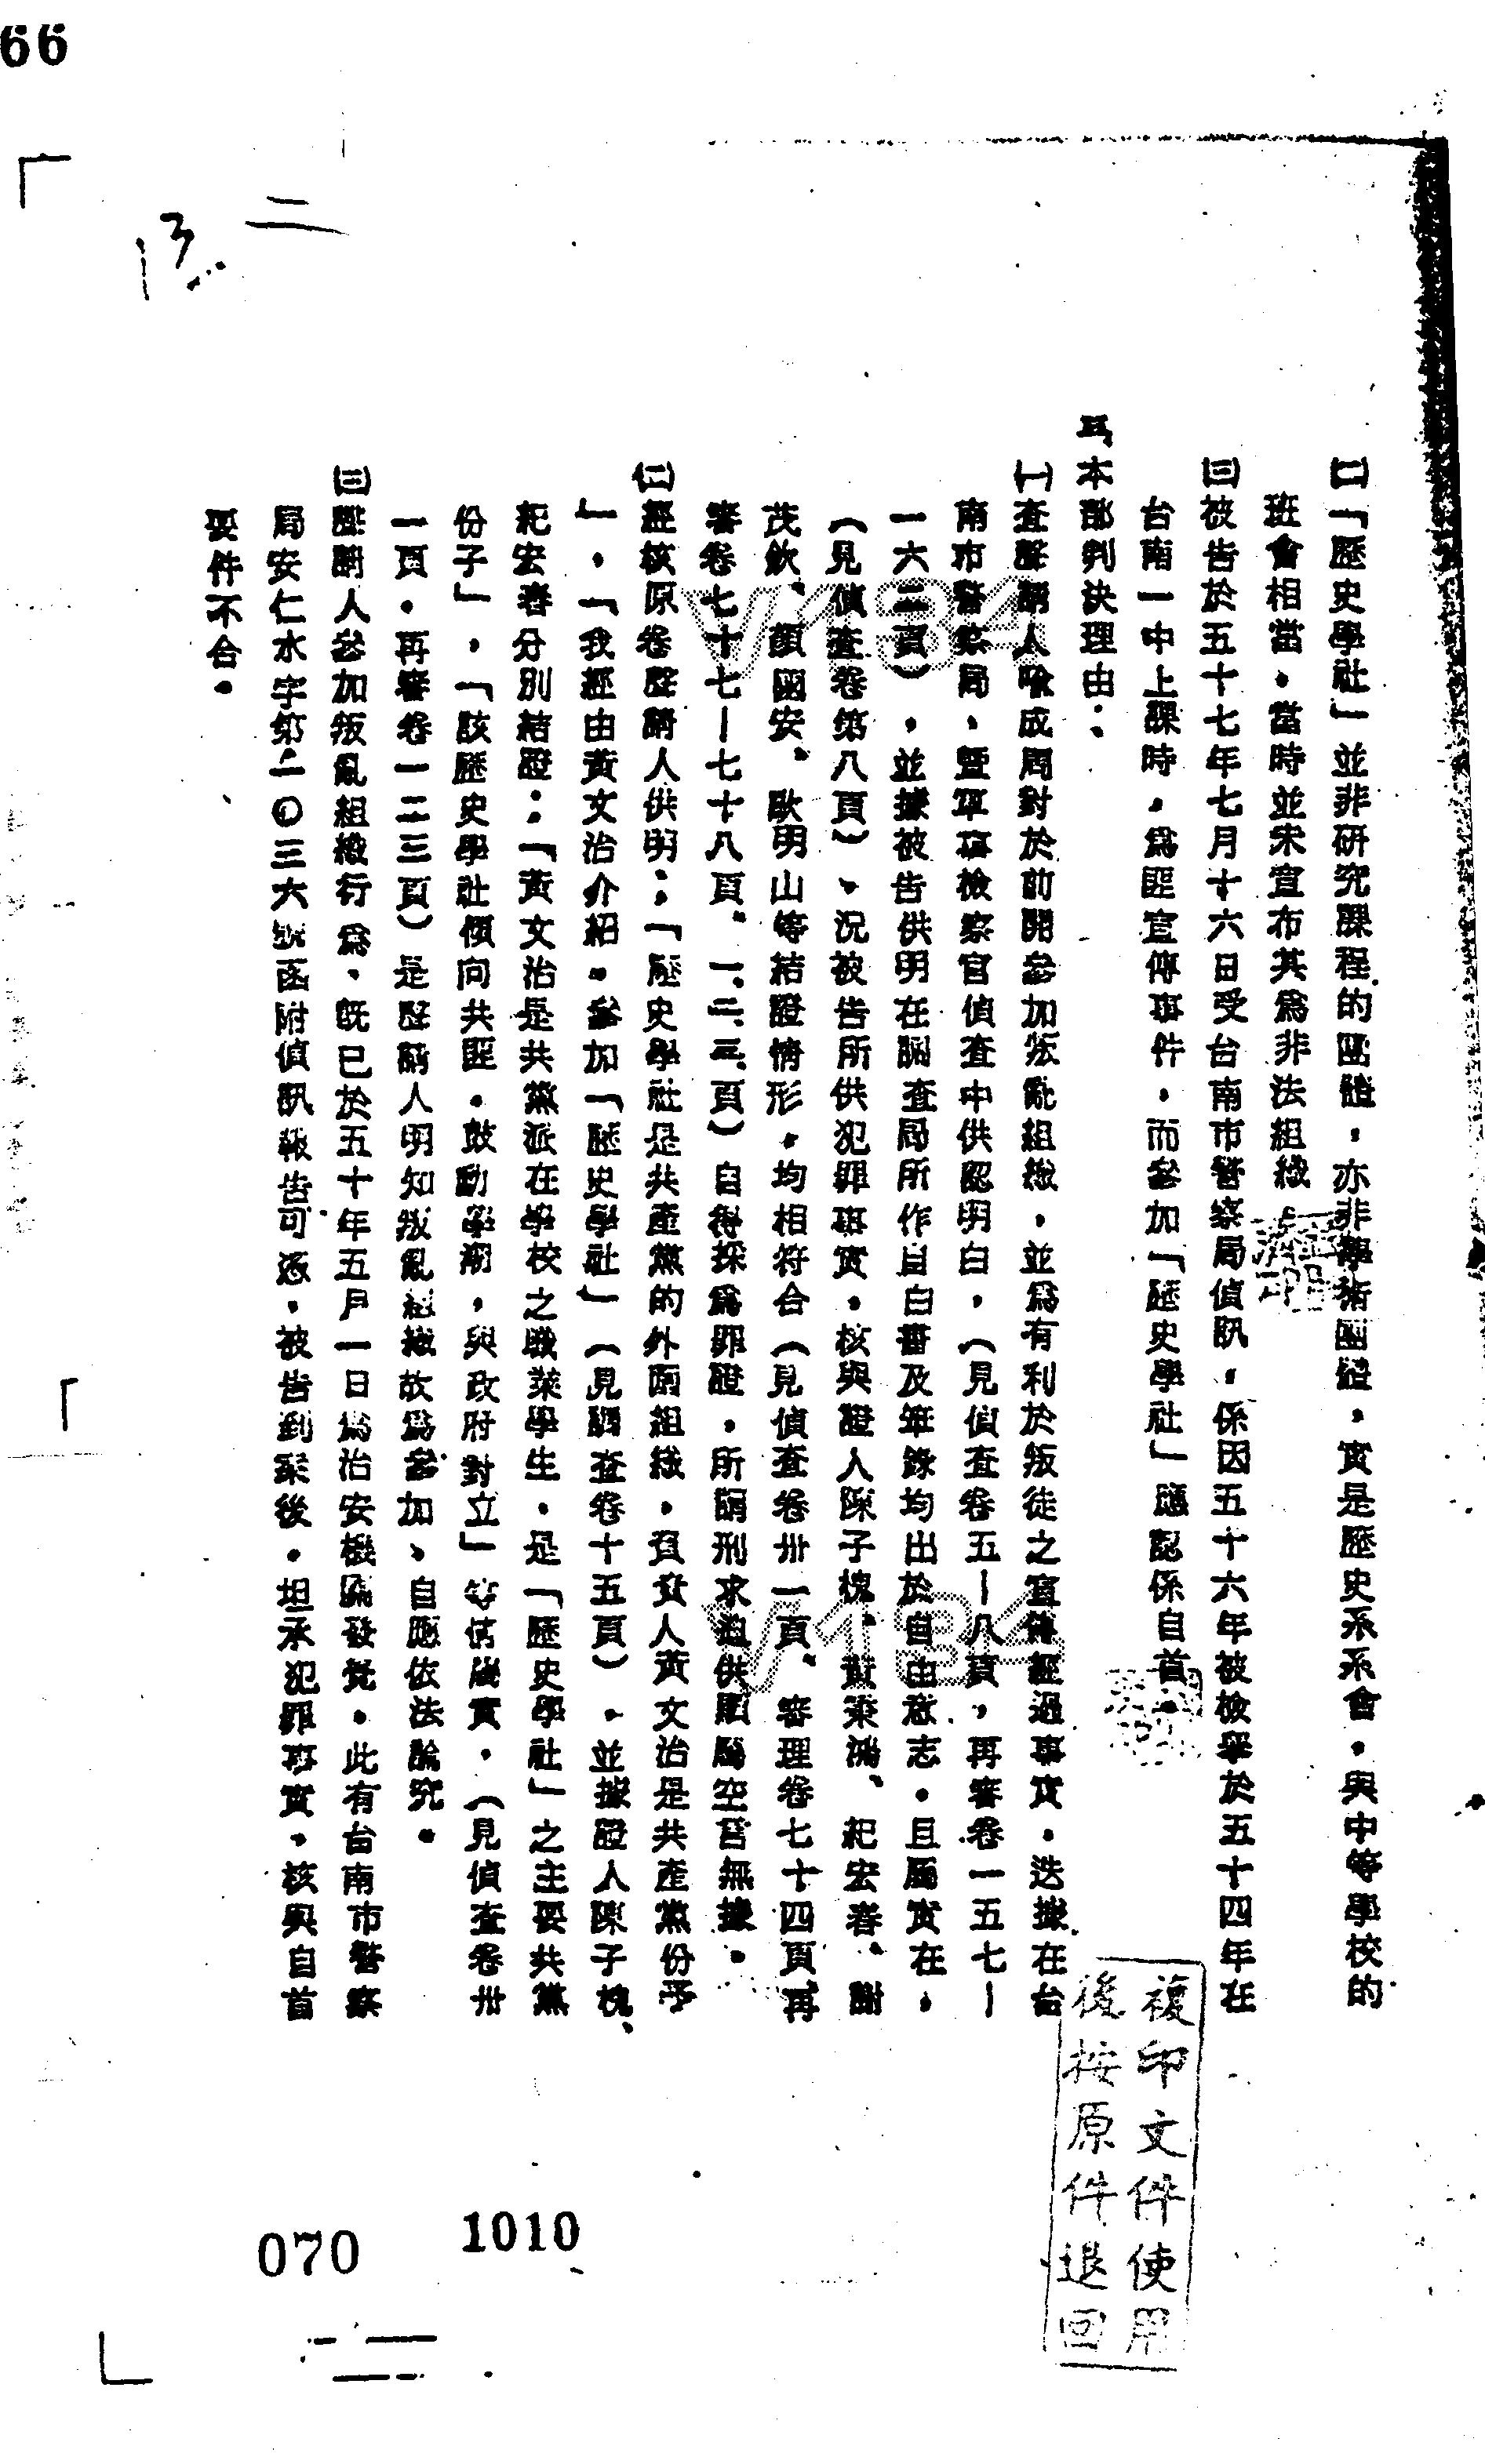 66
13
二
㈡「歷史學社」並非研究課程的團體，亦非學術團體，實是歷史系系會，與中等學校的
班會相當，當時並未宣布其為非法組織。
㈢被告於五十七年七月十六日受台南市警察局偵訊，係因五十六年被檢舉於五十四年在
台南一中上課時，為匪宣傳事件，而參加「歷史學社」應認係自首。
本部判決理由：
㈠查聲請人喻成周對於前開參加叛亂組織，並為有利於叛徒之宣傳經過事實，迭據在台
南市警察局、暨軍事檢察官偵查中供認明白，（見偵查卷五—八頁，再審卷一五七—
一六二頁），並據被告供明在調查局所作自白書及筆錄均出於自由意志。且屬實在，
（見偵查卷第八頁）、況被告所供犯罪事實，核與證人陳子槐、黃秉鴻、紀宏春、謝
茂欽、顏國安、歐明山等結證情形，均相符合（見偵查卷卅一頁、審理卷七十四頁再
審卷七十七—七十八頁、一、二、三頁）自得採為罪證，所謂刑求逼供顯屬空言無據。
㈡經核原卷聲請人供明：「歷史學社是共產黨的外圍組織，負責人黃文治是共產黨份子
」，「我經由黃文治介紹，參加「歷史學社」（見調查卷十五頁），並據證人陳子槐、
紀宏春分別結證：「黃文治是共黨派在學校之職業學生，是「歷史學社」之主要共黨
份子」，「該歷史學社傾向共匪，鼓動學潮，與政府對立」等情屬實，（見偵查卷卅
一頁，再審卷一二三頁）是聲請人明知叛亂組織故為參加、自應依法論究。
㈢聲請人參加叛亂組織行為，既已於五十年五月一日為治安機關發覺，此有台南市警察
局安仁水字第二〇三六號函附偵訊報告可憑，被告到案後，坦承犯罪事實，核與自首
要件不合。
複印文件使用
後按原件退回
070
1010
V134
V134